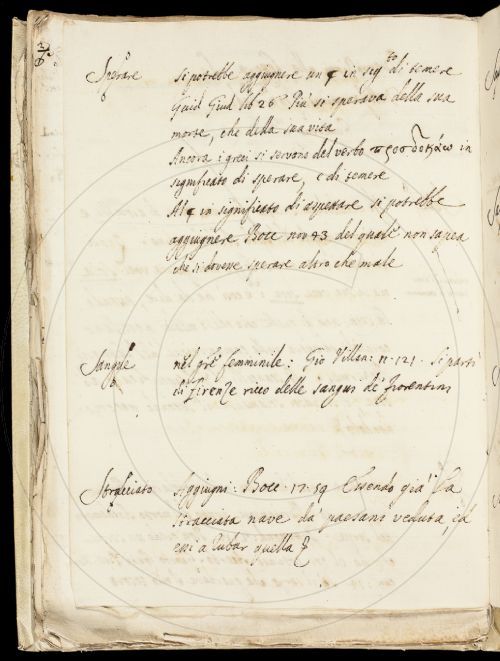 Sperare si potrebbe aggiugnere un § in sig.to di temere
Guid Giud lib 26. Più si sperava della sua
morte, che della sua vita
Ancora i greci si servono del verbo προσδοκάω in
significato di sperare, e di temere
Al § in significato di aspettare si potrebbe
aggiugnere Bocc nov 43 del quale non sapea
che si dovere sperare altro che male
Sangue nel gñe femminile: Gio Villan: 11. 121. Si partì
di Firenze ricco delle sangui de' Fiorentini
Stracciato Aggiugni. Bocc. 17. 59 Essendo già la
stracciata nave da paesani veduta, ed
essi a rubar quella